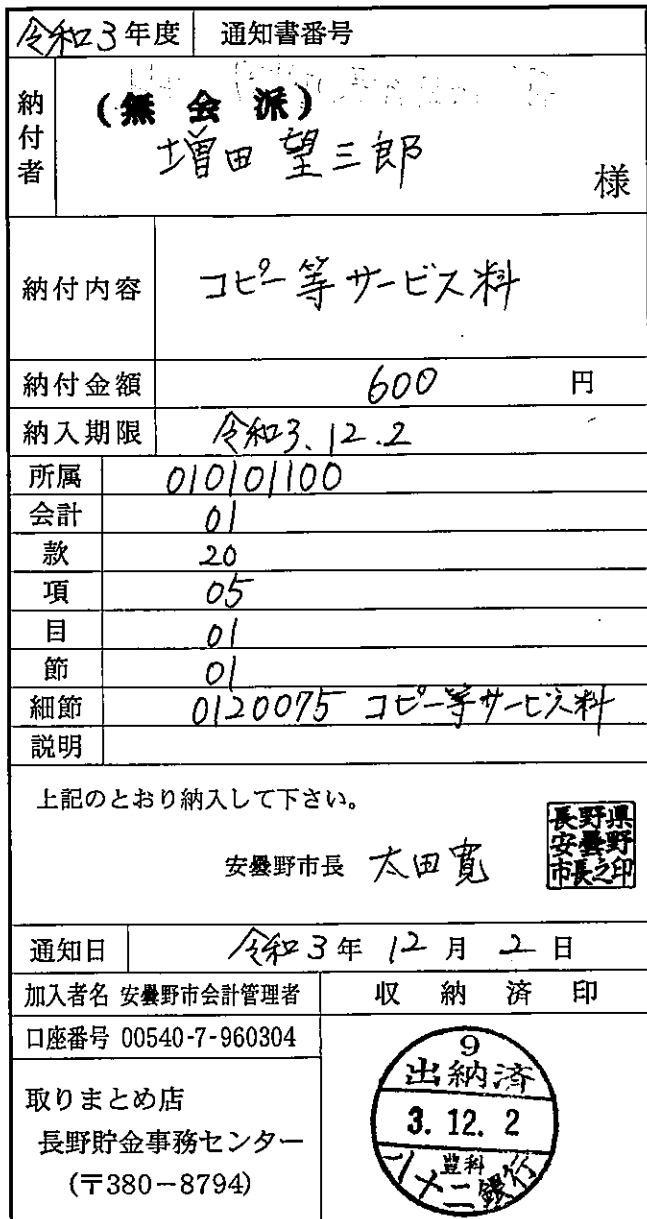 令和3年度 通知書番号
納付者
(無会派)
増田望三郎
様
納付内容 コピー等サービス料
納付金額 600 円
納入期限 令和3.12.2
所属 010101100
会計 01
款 20
項 05
目 01
節 01
細節 0120075 コピー等サービス料
説明
上記のとおり納入して下さい。
安曇野市長 太田寛
長野県
安曇野
市長之印
通知日 令和3年12月2日
加入者名 安曇野市会計管理者 収納済印
口座番号 00540-7-960304
取りまとめ店
長野貯金事務センター
(〒380-8794)
9
出納済
3.12.2
豊科
八十二銀行